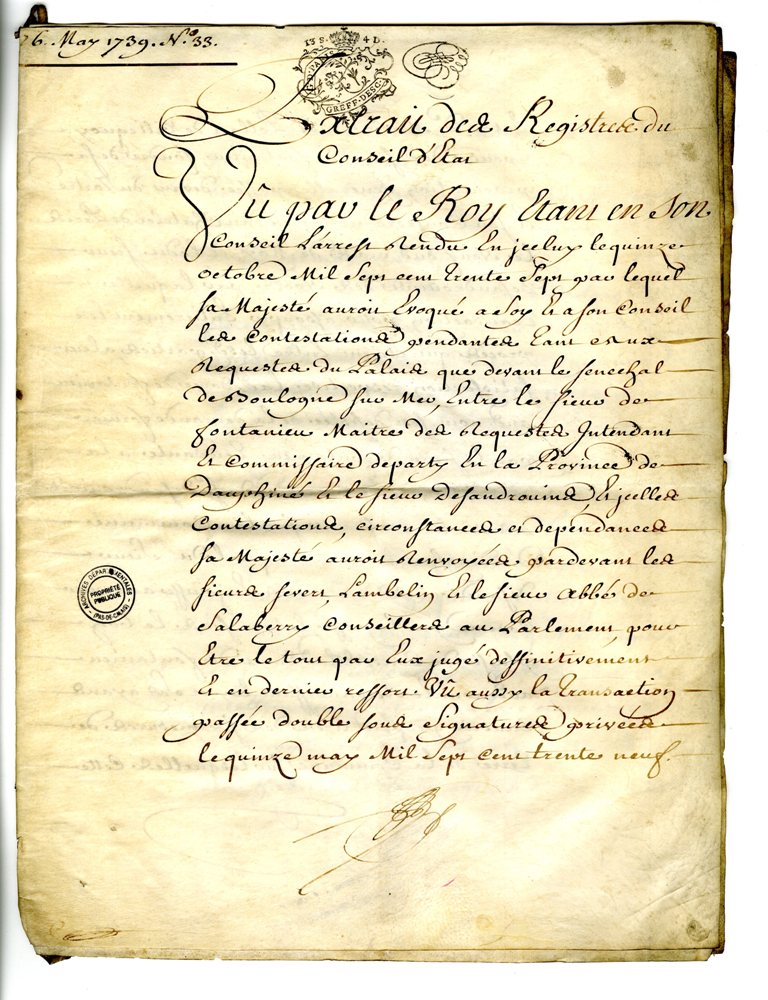 26. May 1739. N.º 33.
13 S. 4 D.
GREFF. DESC.
Extrait des Registres du
Conseil d'Etat
Vû par le Roy Etant en Son
Conseil L'arrest Rendu En jceluy le quinze
octobre Mil Sept cent trente Sept par lequel
sa Majesté auroit Evoqué a Soy Et a son Conseil
les Contestations pendantes tant aux
Requestes du Palais que devant le senechal
de Boulogne sur Mer, Entre le sieur de
fontanieu Maitre des Requestes Intendant
Et Commissaire departy En la Province de
Dauphiné Et le sieur Desandrouins, Et jcelles
Contestations, circonstances et dependances
sa Majesté auroit Renvoyées pardevant les
sieurs severt, Lambelin Et le sieur Abbé de
Salaberry Conseillers au Parlement, pour
Etre le tout par Eux jugé deffinitivement
Et en dernier ressort. Vû aussy la transaction
passée double sous Signatures privées
le quinze may Mil Sept cent trente neuf.
ARCHIVES DÉPARTEMENTALES
PROPRIÉTÉ
PUBLIQUE
(PAS-DE-CALAIS)